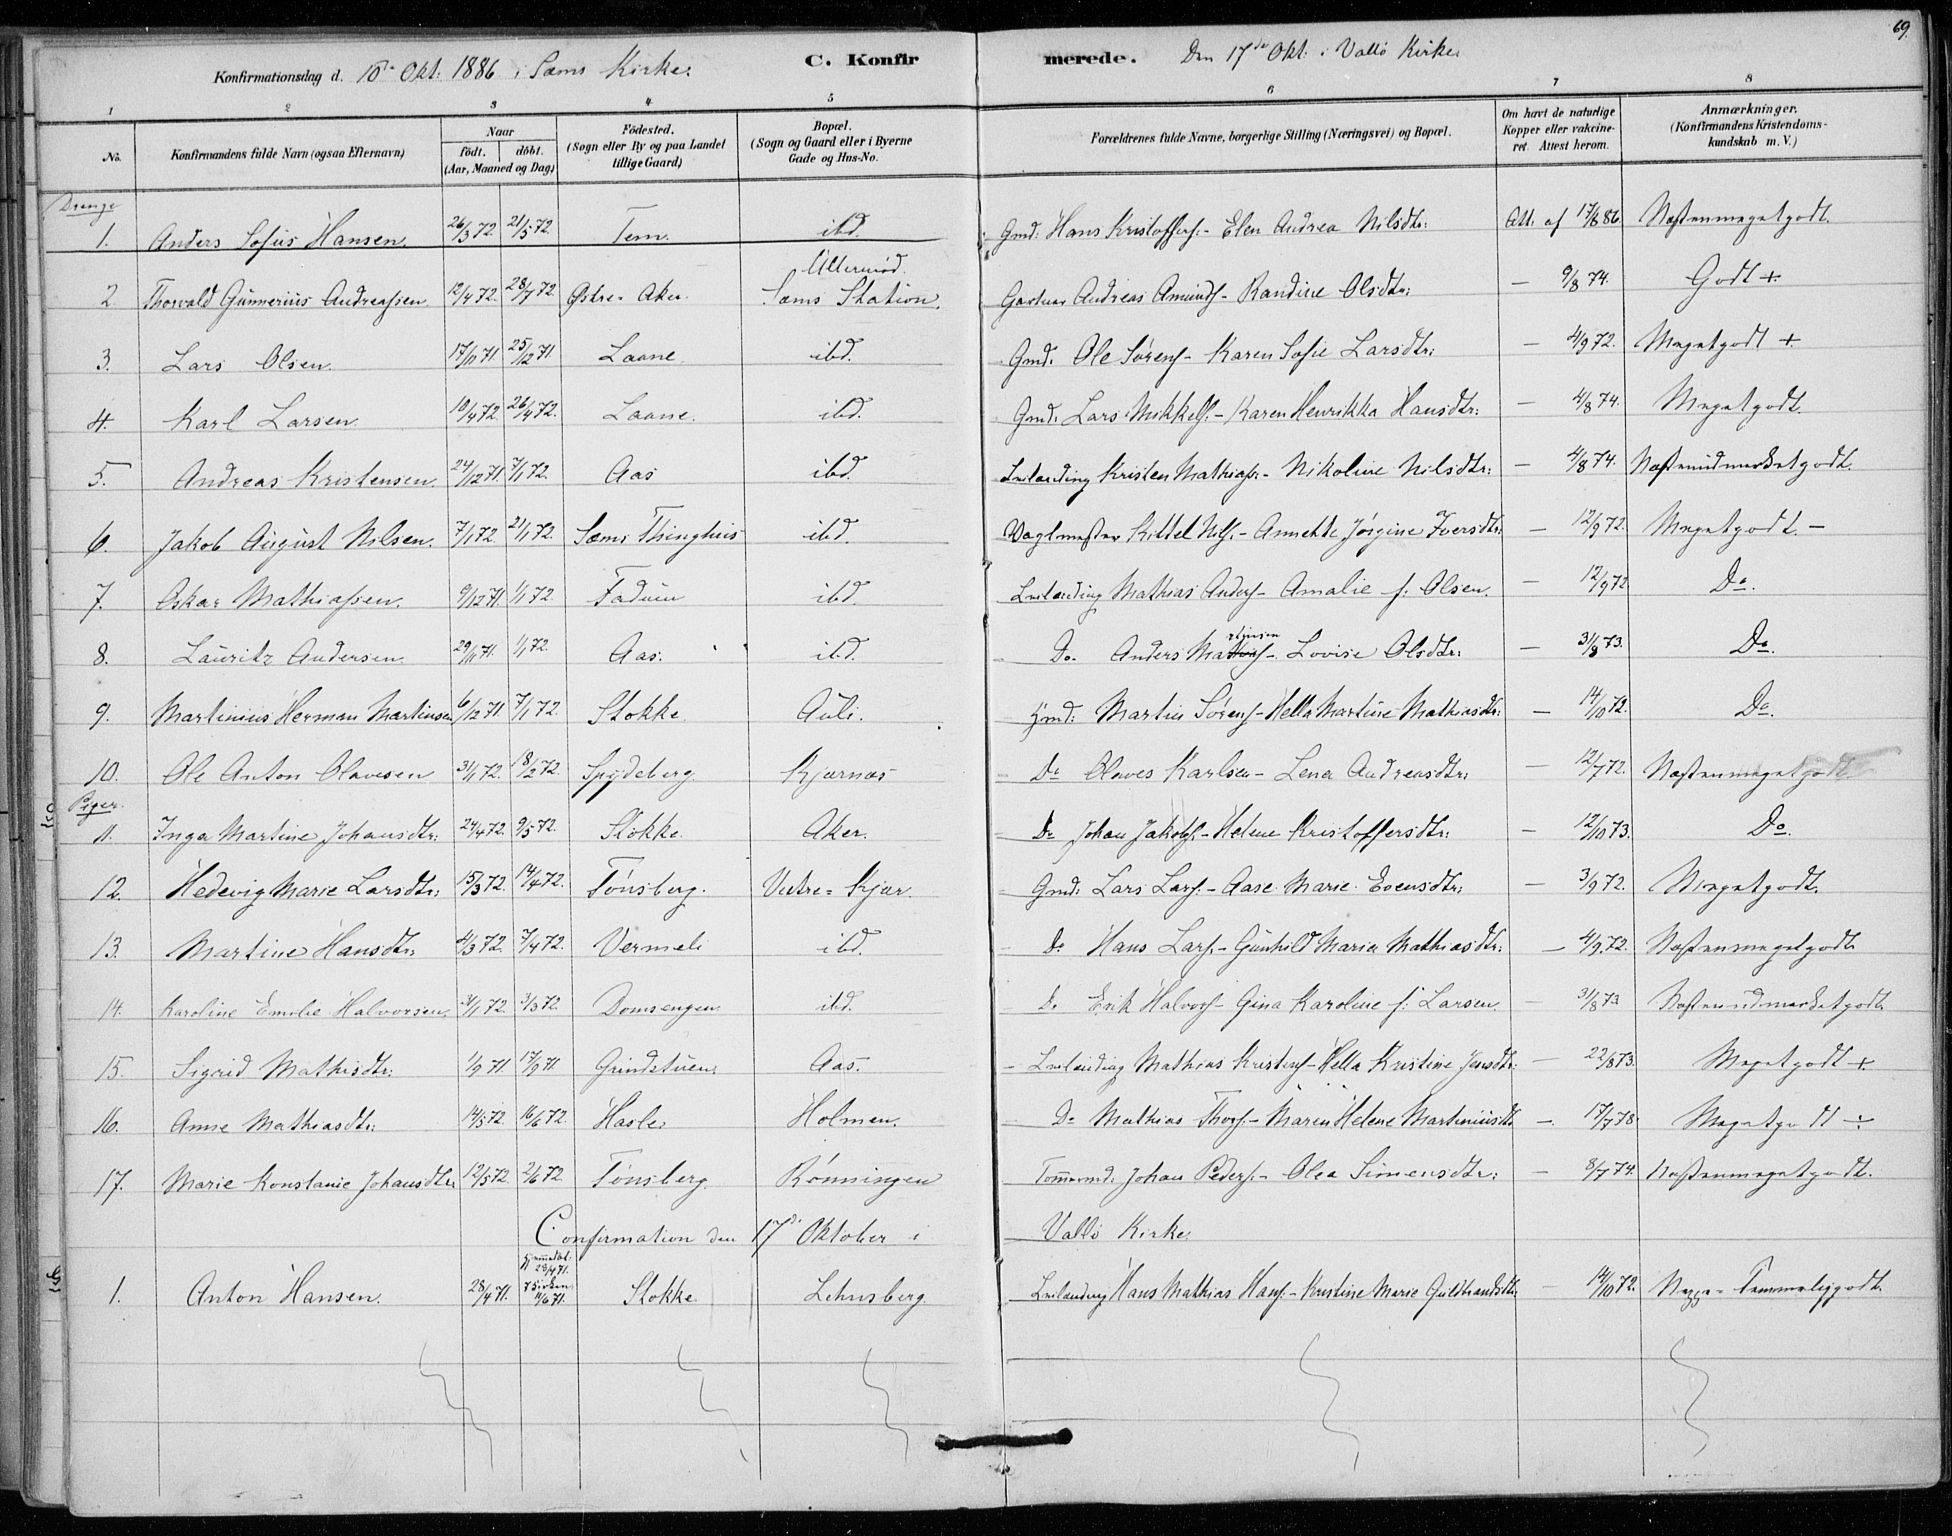 69.
Konfirmationsdag d. 10de Okt. 1886 i Sems Kirke. C. Konfirmerede. Den 17de Okt. i Vallö Kirke.
1 2 3 4 5 6 7 8
No. Konfirmandens fulde Navn (ogsaa Efternavn) Naar født. døbt. (Aar, Maaned og Dag) Fødested. (Sogn eller By og paa Landet tillige Gaard) Bopæl. (Sogn og Gaard eller i Byerne Gade og Hus-No. Forældrenes fulde Navne, borgerlige Stilling (Næringsvei) og Bopæl. Om havt de naturlige Kopper eller vakcineret. Attest herom. Anmærkninger. (Konfirmandens Kristendomskundskab m. V.)
Drenge
1. Anders Sofus Hansen. 26/3 72. 21/5 72. Tem. ibd. Gmd. Hans Kristoffers. - Elen Andrea Nilsdtr: Att. af 17/8 86. Næstenmegetgodt.
2. Thorvald Gunnerius Andreassen 12/4 72. 28/7 72. Østre Aker. Sems Station. Gartner Andreas Amunds. - Randine Olsdtr: — 9/8 74. Godt +.
3. Lars Olsen. 17/11 71. 25/12 71. Laane. ibd. Gmd. Ole Sørens. - Karen Sofie Larsdtr: — 4/9 72. Megetgodt +
4. Karl Larsen. 10/4 72. 26/4 72. Laane. ibd. Gmd. Lars Mikkels. - Karen Henrikka Hansdtr: — 4/8 74. Megetgodt.
5. Andreas Kristensen. 24/12 71. 7/1 72. Aas ibd. Leilænding Kristen Mathias. - Nikoline Nilsdtr: — 4/8 74. Næstenudmerketgodt.
6. Jakob August Nilsen. 7/1 72. 21/1 72. Sems Thinghus ibd. Kittel Nils. - Annette Jørgine Iversdtr: — 12/9 72. Megetgodt -
7. Oskar Mathiassen. 9/12 71. 1/1 72. Fadum ibd. Leilænding Mathias Anders. - Amalie f. Olsen. — 12/9 72. Do.
8. Lauritz Andersen. 29/11 71. 1/1 72. Aas. ibd. Do Anders Lovise Olsdtr: — 31/8 73. Do.
9. Martinius Herman Martinsen 6/12 71. 7/1 72. Stokke. Auli. Gmd: Martin Sørens. - Hella Martine Mathiasdtr: — 14/10 72. Do.
10. Ole Anton Olavesen 31/1 72. 18/2 72. Spydeberg. Kjærnæs Do Olaves Karlsen - Lena Andreasdtr: — 12/7 72. Næstenmegetgodt.
Piger.
11. Inga Martine Johansdtr: 24/4 72. 9/5 72. Stokke. Aker. Do Johan Jakobs. - Helene Kristoffersdtr: — 12/10 73. Do.
12. Hedevig Marie Larsdtr: 15/3 72. 14/4 72. Tønsberg. Vestre Kjær. Gmd: Lars Lars. - Aase Marie Evensdtr: — 3/9 72. Megetgodt.
13. Martine Hansdtr. 4/3 72. 7/4 72. Vermeli ibd. Do Hans Lars. - Gunhild Maria Mathiasdtr: — 4/9. 72. Næstenmegetgodt
14. Karoline Emilie Halvorsen. 31/1 72. 3/3 72. Domsengen ibd. Do Erik Halvors. - Gina Karoline f. Larsen. — 31/8 73 Næstenudmerketgodt.
15. Sigrid Mathisdtr: 1/9 71 17/9 71. Grindstuen Aas. Leilænding Mathias Kristens. - Hella Kristine Jensdtr: — 22/8 73. Megetgodt +
16. Anne Mathiasdtr: 14/5 72. 16/6 72. Hasle. Holmen. Do Mathias Thors. - Maren Helene Martiniusdtr — 17/7 78. Megetgodt ÷
17. Marie Konstanse Johansdtr. 12/5 72. 2/6 72. Tønsberg. Rønningen Tømmermd. Johan Peders. - Olea Simensdtr: — 8/7 74. Næstenmegetgodt.
Confirmation den 17de Oktober i Vallö Kirke.
1. Anton Hansen. 28/4 71. Hjemmedøbt 29/4 71. i Kirken 11/6 71. Stokke. Lehnsberg. Leilænding Hans Mathias Hans. - Kristine Marie Guldbrandsdtr: — 14/10 72. Neppe Temmeliggodt.